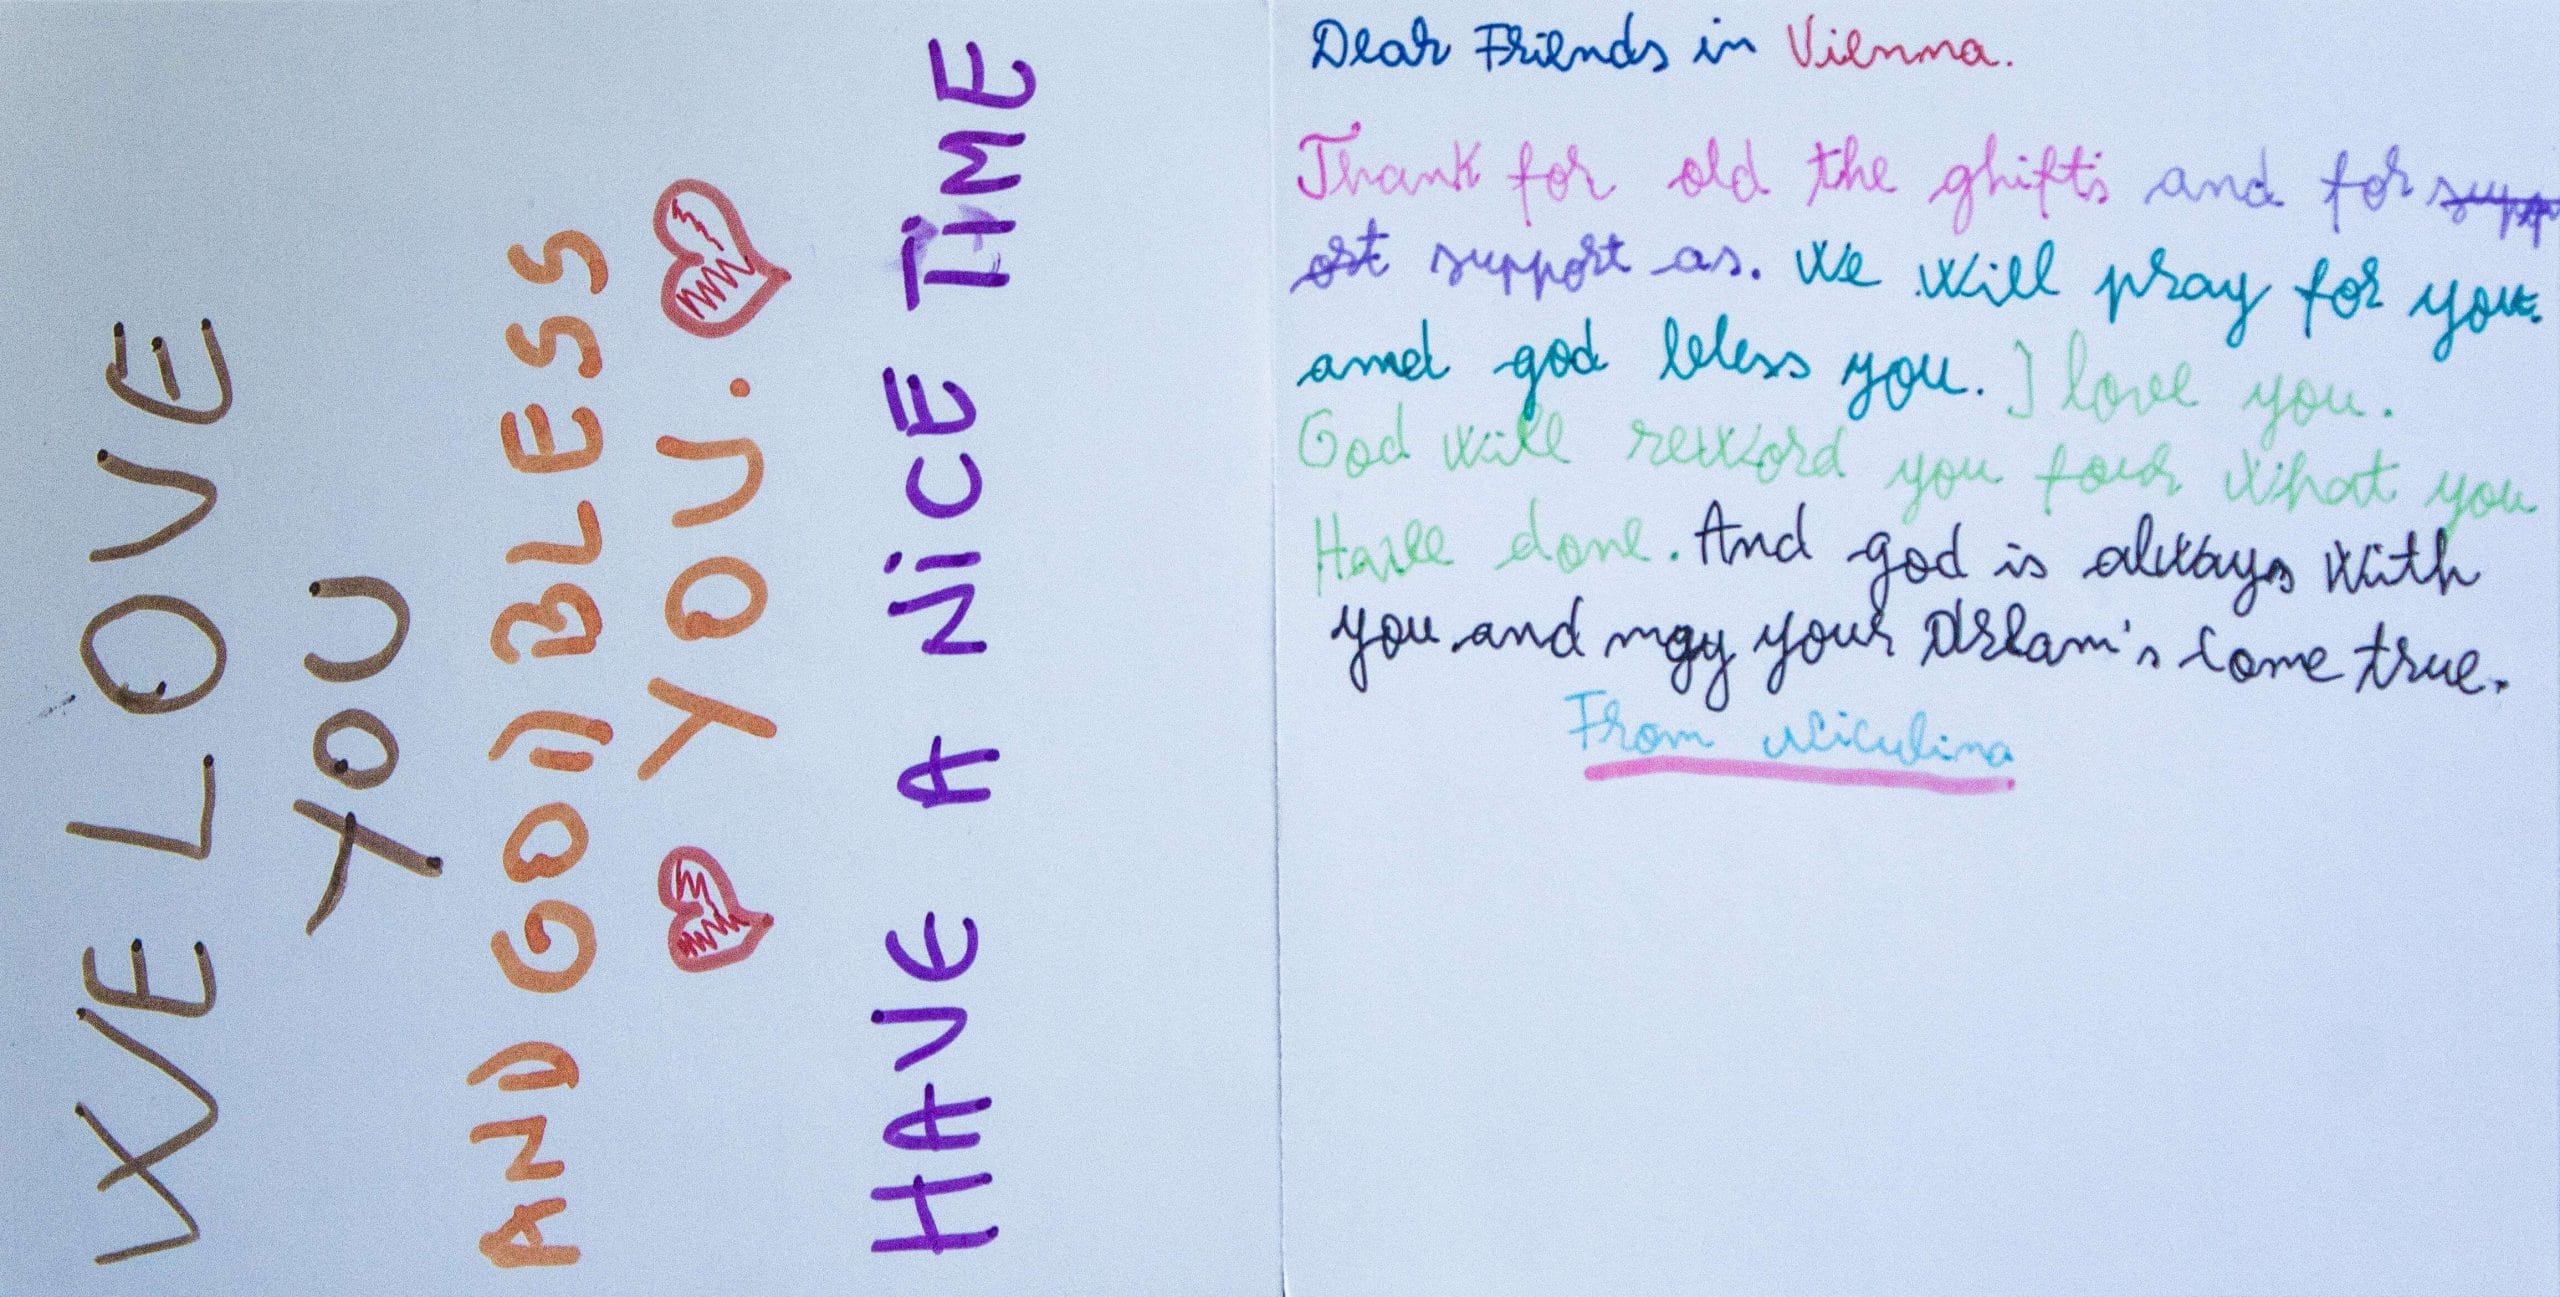 WE LOVE
YOU
AND GOD BLESS
YOU.
HAVE A NICE TIME
Dear Friends in Vienna.
Thank for old the ghifts and for supp
ort support as. We will pray for you.
and god bless you. I love you.
God will reword you four what you
Have done. And god is always with
you and may your Dream's come true.
From Niculina